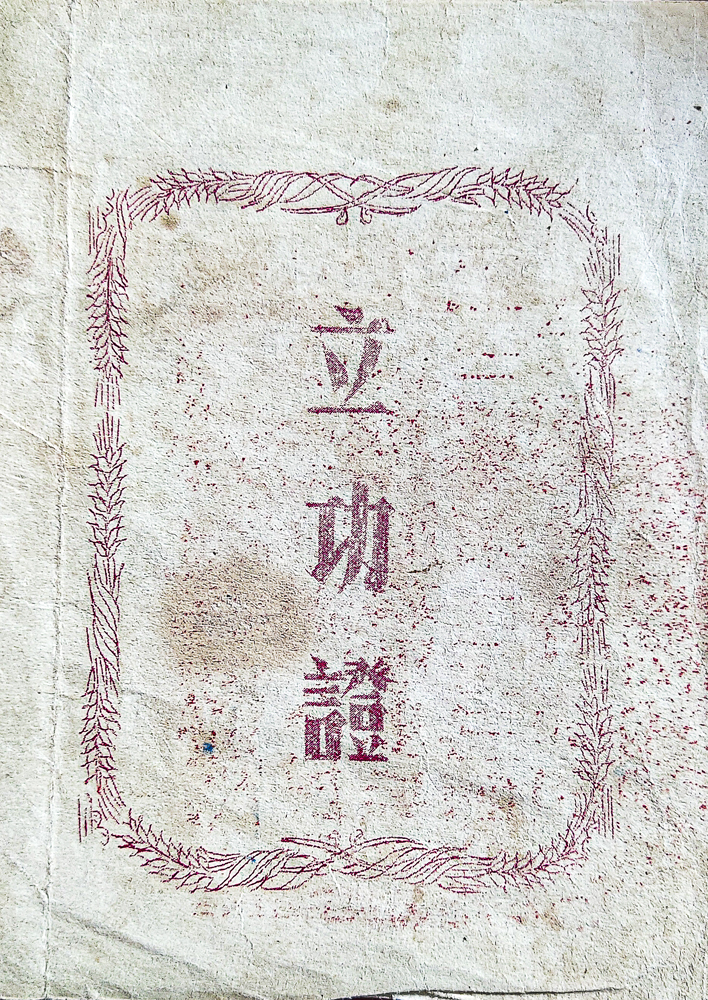 立功證